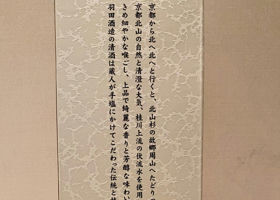 京都から北へ北へと行くと、北山杉の故郷周山へたどり
京都北山の自然と清澄な大気、桂川上流の伏流水を使用
きめ細やかな喉ごし、上品で綺麗な香りと芳醇な味わい
羽田酒造の清酒は蔵人が手塩にかけてこだわった伝統と